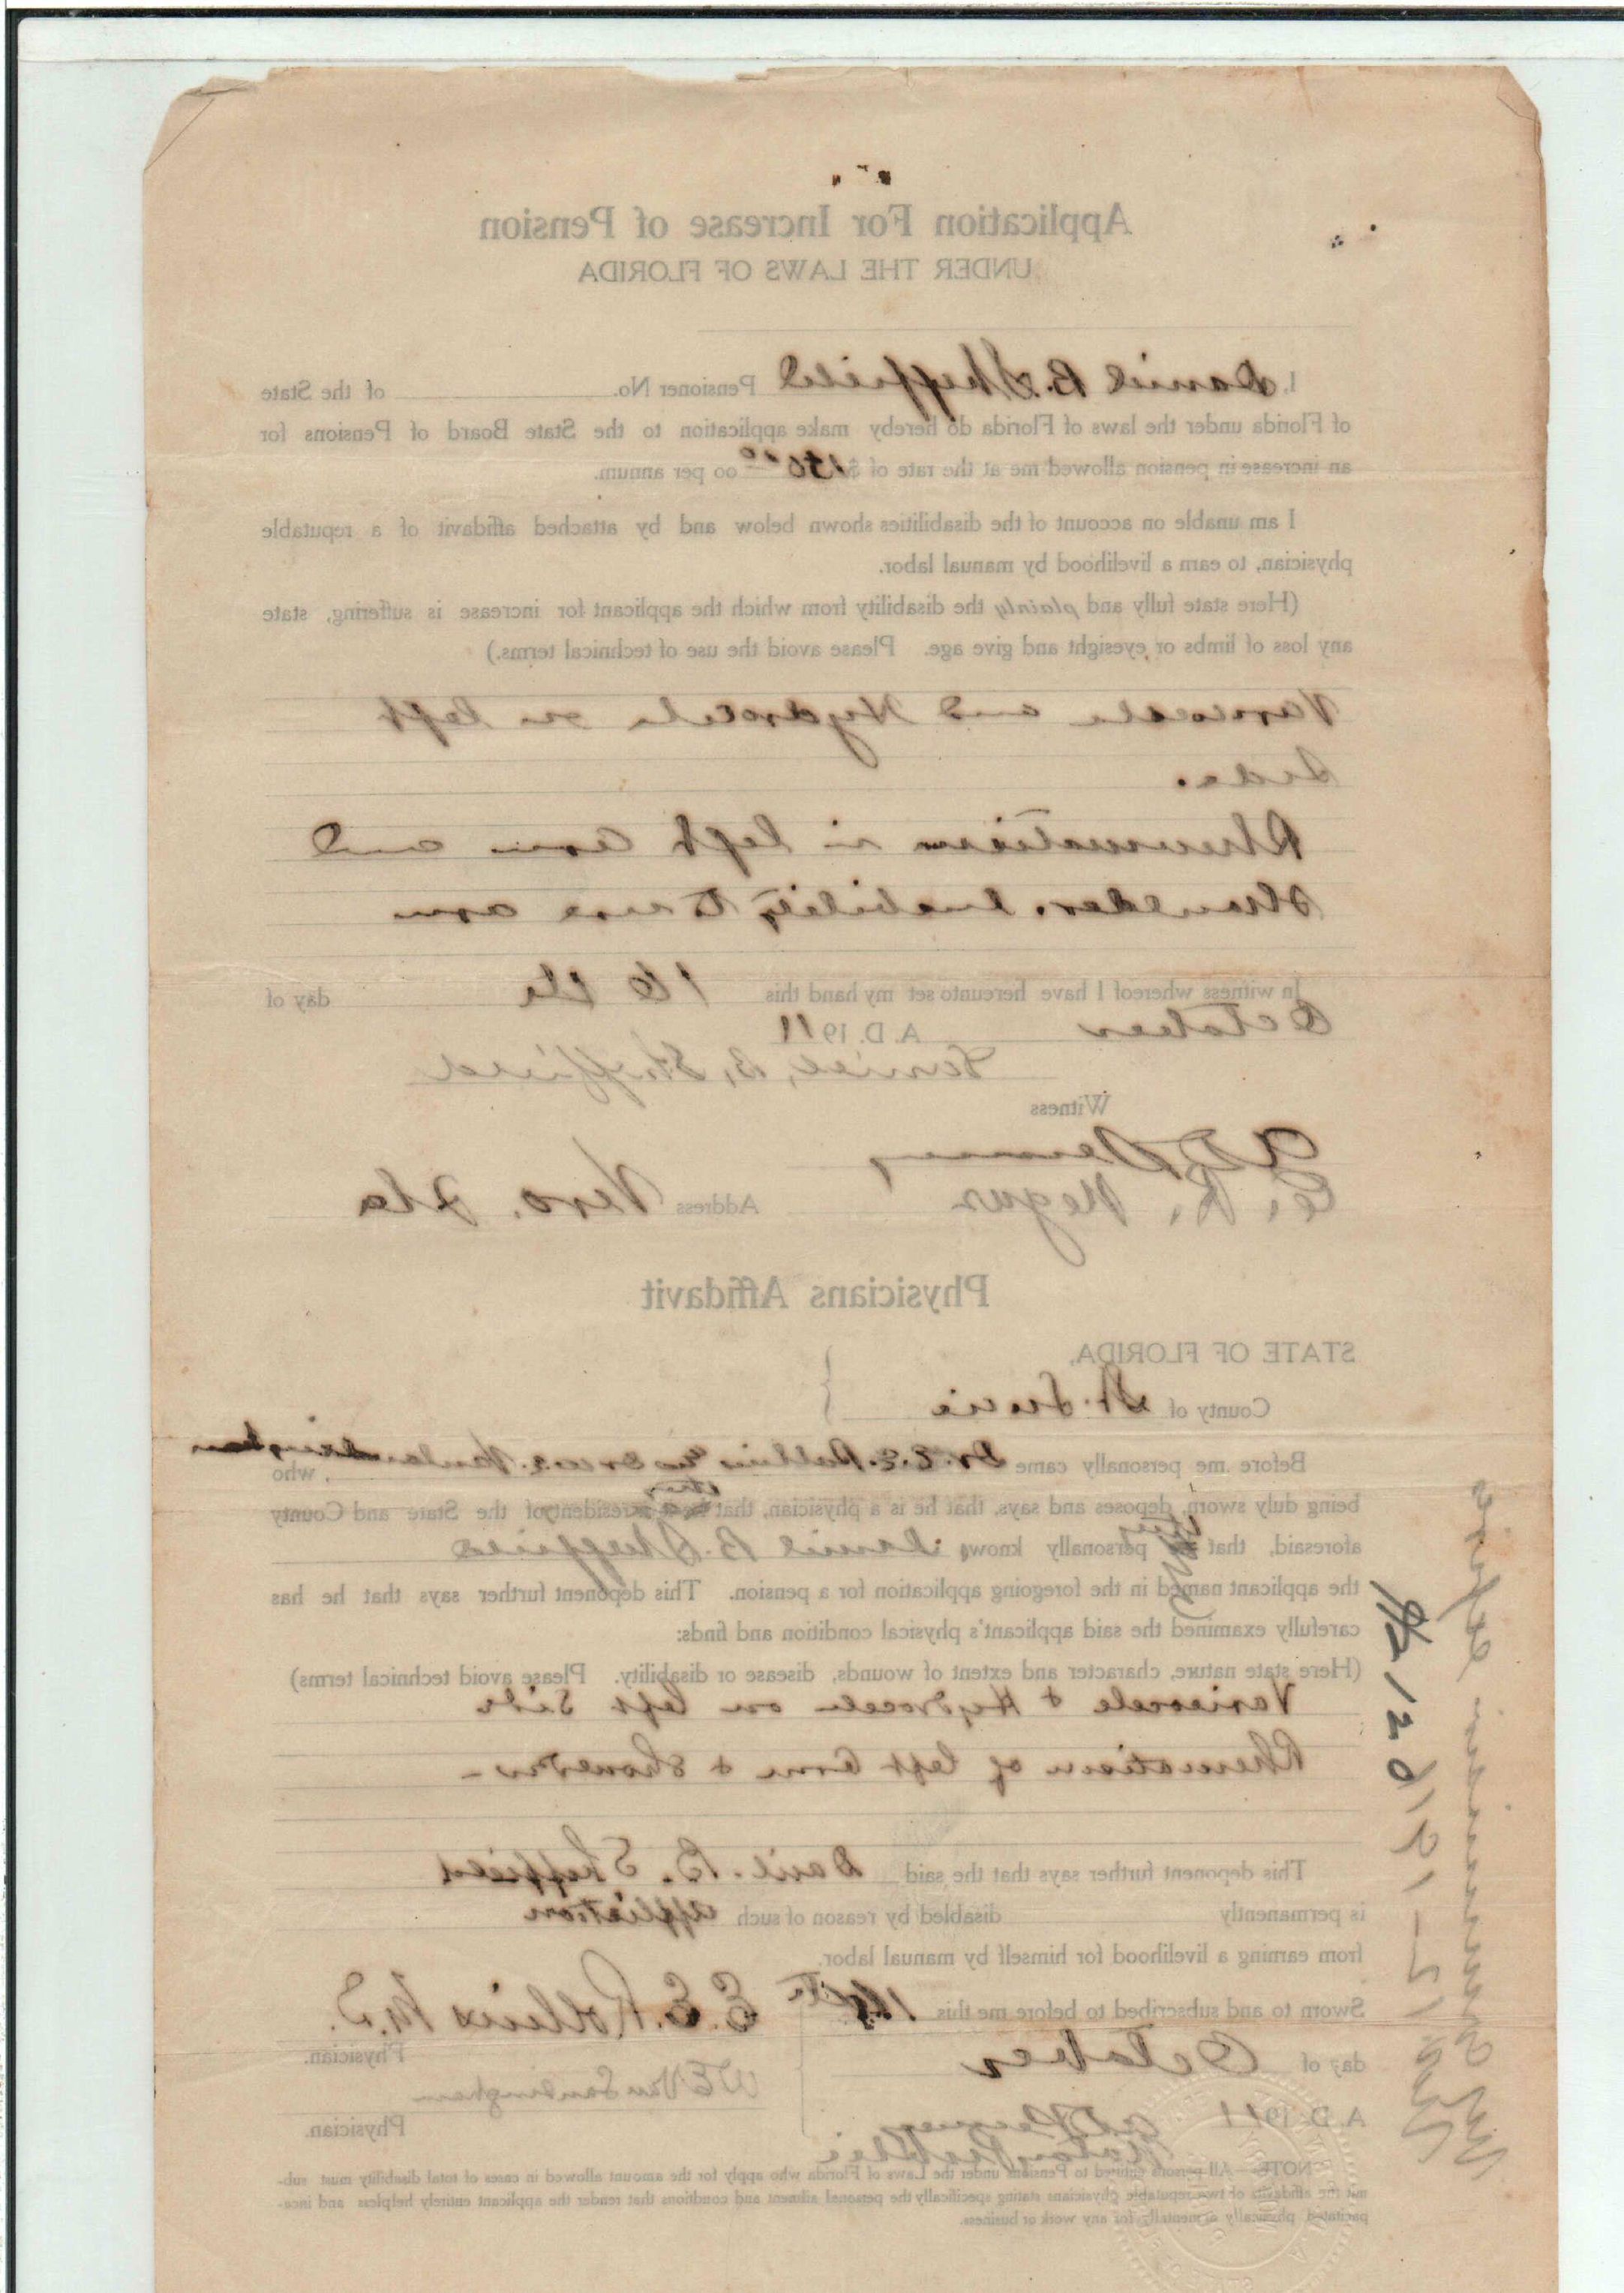 Application For Increase of Pension
UNDER THE LAWS OF FLORIDA
I, Daniel B. Sheffield Pensioner No. of the State
of Florida under the laws of Florida do hereby make application to the State Board of Pensions for
an increase in pension allowed me at the rate of $150.00 oo per annum.
I am unable on account of the disabilities shown below and by attached affidavit of a reputable
physician, to earn a livelihood by manual labor.
(Here state fully and plainly the disability from which the applicant for increase is suffering, state
any loss of limbs or eyesight and give age. Please avoid the use of technical terms.)
Varicocele and Hydrocele on left
side.
Rheumatism in left arm and
shoulder. Inability to use arm
In witness whereof I have hereunto set my hand this 16th day of
October A. D. 1911
Daniel, B, Sheffield
Witness
E. R. Negus Address Vero. Fla
Physicians Affidavit
STATE OF FLORIDA,
County of St. Lucie
Before me personally came Dr. E. E. Rollins , who
being duly sworn, deposes and says, that he is a physician, that they resident of the State and County
aforesaid, that they personally knows Daniel B. Sheffield
the applicant named in the foregoing application for a pension. This deponent further says that he has
carefully examined the said applicant's physical condition and finds:
(Here state nature, character and extent of wounds, disease or disability. Please avoid technical terms)
Varicocele & Hydrocele on left side
Rheumatism of left arm & shoulder -
This deponent further says that the said Danl. B. Sheffield
is permanently disabled by reason of such affliction
from earning a livelihood for himself by manual labor.
Sworn to and subscribed to before me this 16th E. E. Rollins M.D.
Physician.
day of October
W E Van Landingham
A. D. 1911
Physician.
Notary Public
NOTE—All persons entitled to Pensions under the Laws of Florida who apply for the amount allowed in cases of total disability must sub-
mit the affidavits of two reputable physicians stating specifically the personal ailment and conditions that render the applicant entirely helpless and inca-
pacitated physically or mentally for any work or business.